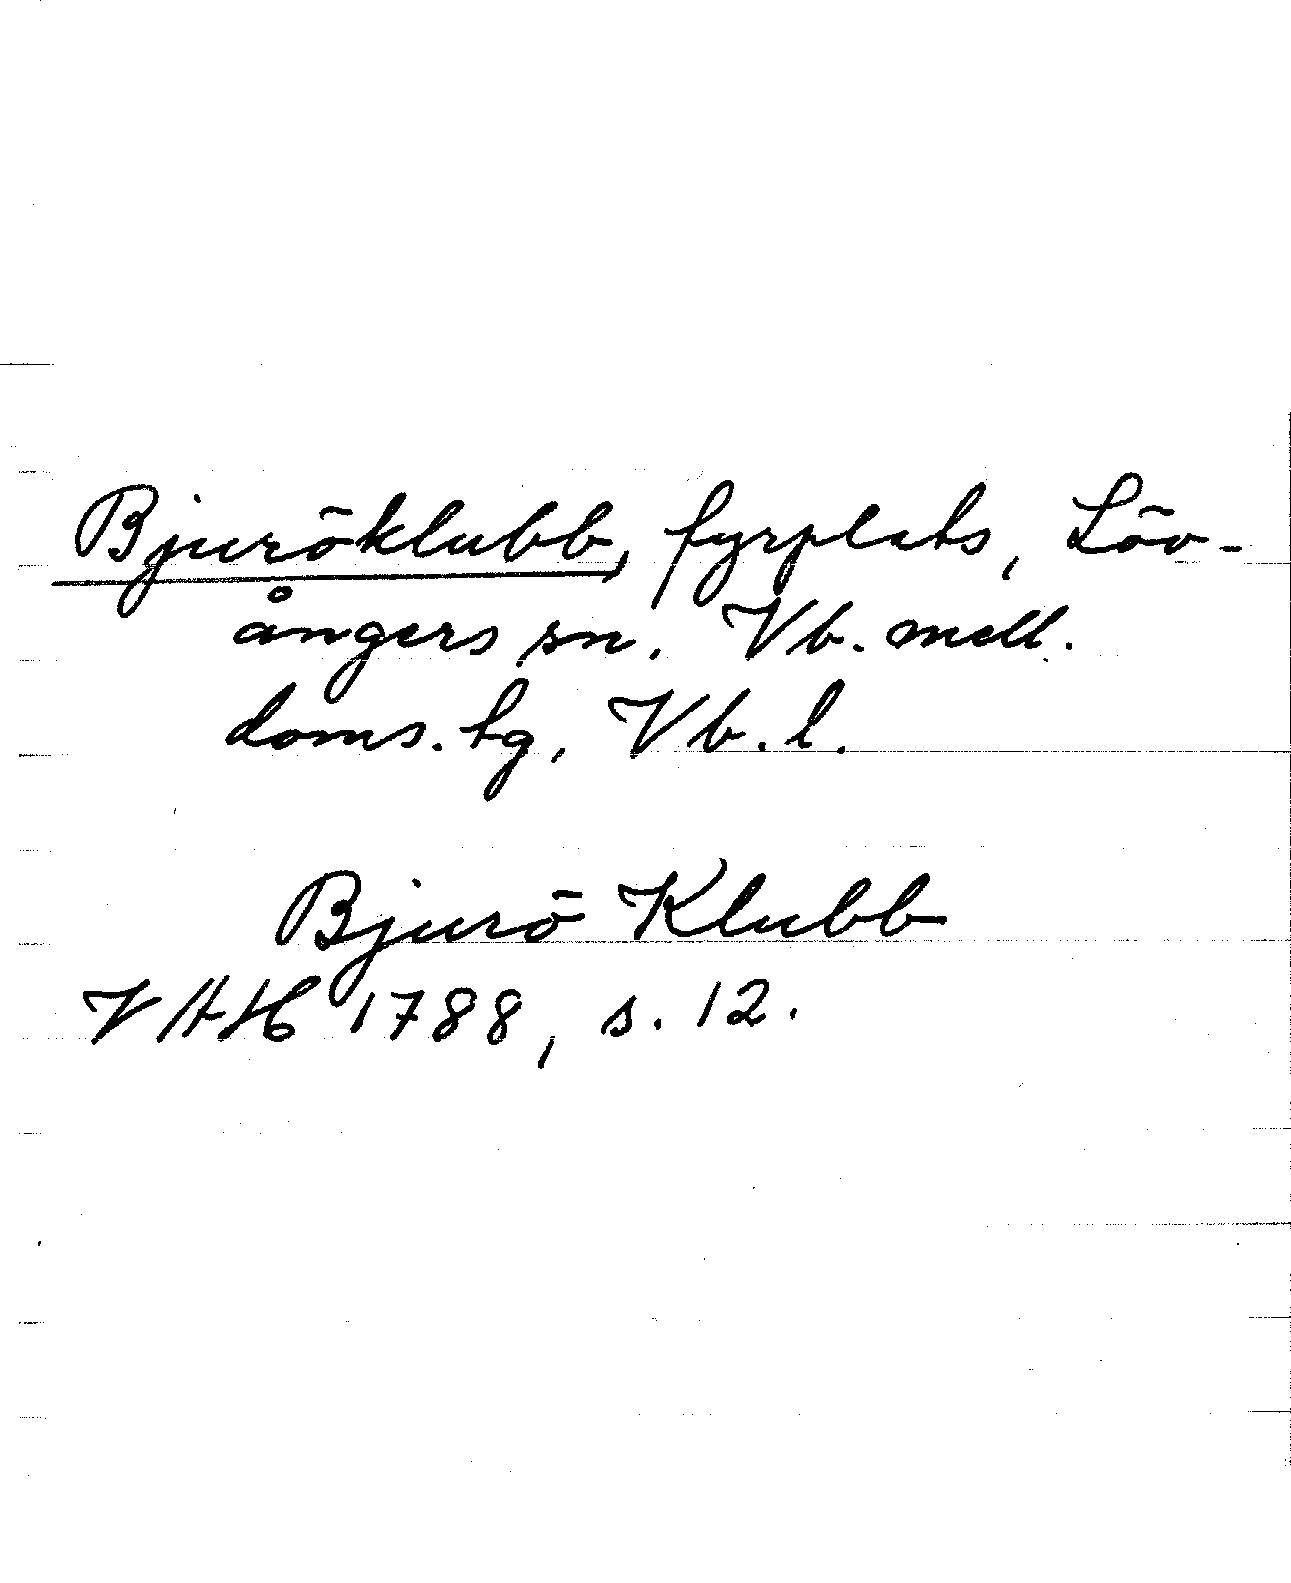 Bjuröklubb, fyrplats, Löv-
ångers sn. Vb. mell.
doms. tg, Vb. l.
Bjurö Klubb
VAH 1788, s. 12.